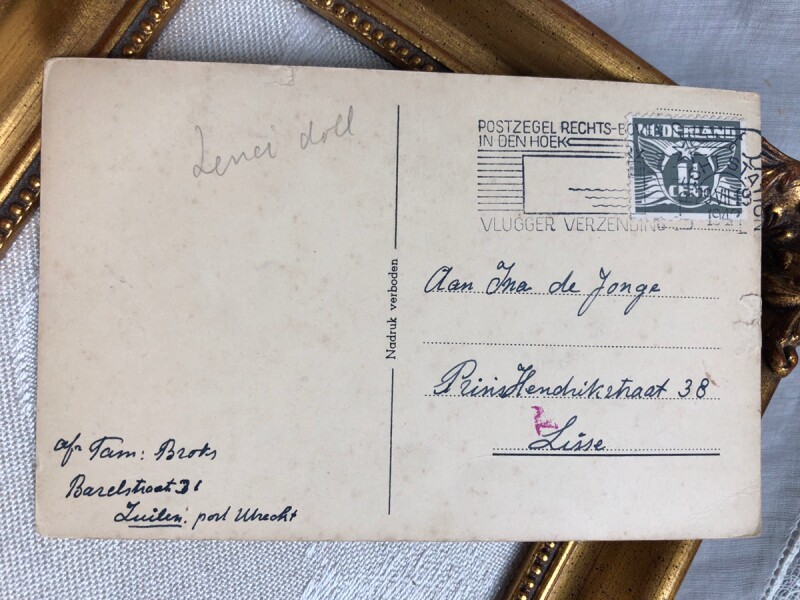 Lenci doll
POSTZEGEL RECHTS-BO
IN DEN HOEK
VLUGGER VERZENDING
NEDERLAND
1½
CENT
STATION
194
Nadruk verboden
Aan Ina de Jonge
Prins Hendrikstraat 38
Lisse
afz Fam: Broks
31
Zuilen. post Utrecht